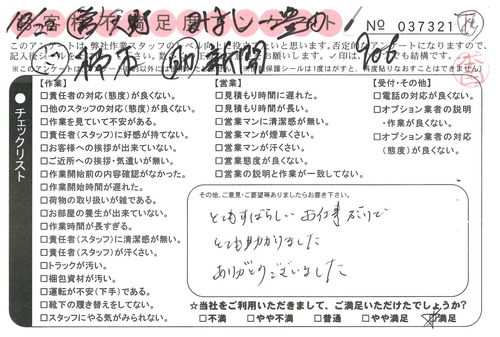 № 037321
このアンケートは、弊社作業スタッフのレベル向上に役立てたいと思います。否定的なアンケートになりますので、
チェックリスト
【作業】
□責任者の対応(態度)が良くない。
□他のスタッフの対応(態度)が良くない。
□作業を見ていて不安がある。
□責任者(スタッフ)に好感が持てない。
□お客様への挨拶が出来ていない。
□ご近所への挨拶・気遣いが無い。
□作業開始前の内容確認がなかった。
□作業開始時間が遅れた。
□荷物の取り扱いが雑である。
□お部屋の養生が出来ていない。
□作業時間が長すぎる。
□責任者(スタッフ)に清潔感が無い。
□責任者(スタッフ)が汗くさい。
□トラックが汚い。
□梱包資材が汚い。
□運転が不安(下手)である。
□靴下の履き替えをしてない。
□スタッフにやる気がみられない。
【営業】
□見積もり時間に遅れた。
□見積もり時間が長い。
□営業マンに清潔感が無い。
□営業マンが煙草くさい。
□営業マンが汗くさい。
□営業態度が良くない。
□営業の説明と作業が一致してない。
【受付・その他】
□電話の対応が良くない。
□オプション業者の説明
・作業が良くない。
□オプション業者の対応
(態度)が良くない。
その他、ご意見・ご要望等ありましたらお書き下さい。
とてもすばらしいお仕事だりで
とても助かりました
ありがとうございました
☆当社をご利用いただきまして、ご満足いただけたでしょうか?
□不満 □やや不満 □普通 □やや満足 □満足